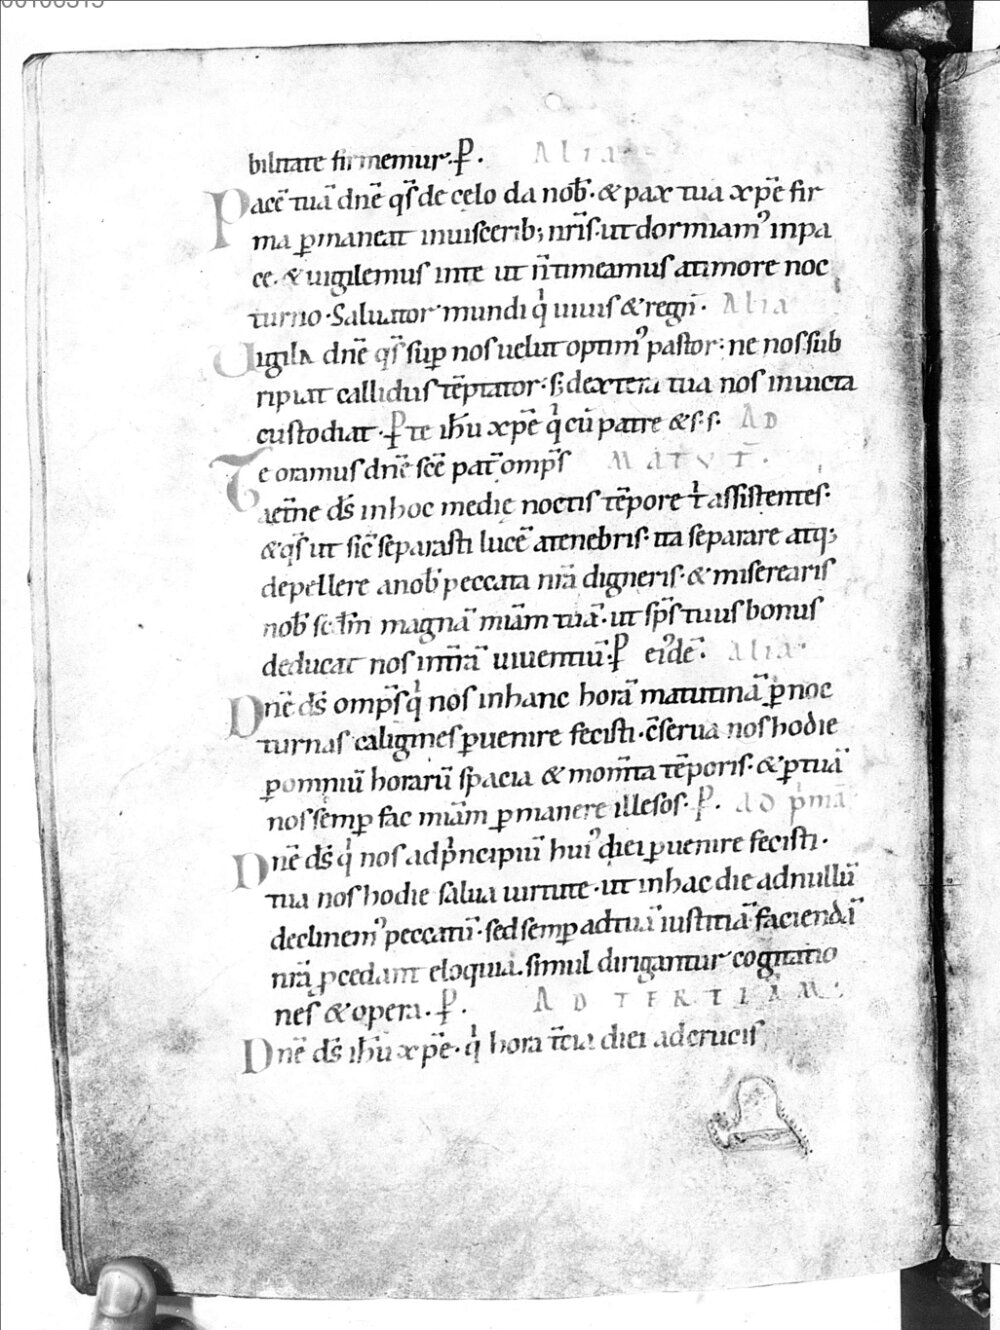 bilitate firmemur. ꝑ. Alia
Pacē tuā dnē qs̄ de celo da nob̄. & pax tua xp̄e fir
ma ꝑmaneat inuiscerib; nr̄is. ut dormiam᾽ inpa
ce. & uigilemus inte ut n̄ timeamus atimore noc
turno. Saluator mundi qͥ uiuis & regn̄. Alia
Uigila dnē qs̄ suꝑ nos uelut optim᾽ pastor: ne nos sub
ripiat callidus tēptator: s; dextera tua nos inuicta
custodiat. ꝑ te ih̄u xp̄e qͥ cū patre & s. s. AD
Te oramus dnē sc̄e pat̄ omp̄s MATVT̄.
aet̄ne ds̄ inhoc medie noctis tēpore t̄ assistentes.
& qs̄ ut sic̄ separasti lucē atenebris. ita separare atq;
depellere anob̄ peccata nr̄a digneris. & miserearis
nob̄ scd̄m magnā miam̄ tuā. ut sp̄s tuus bonus
deducat nos int̄rā uiuentiū. ꝑ ei᾽dē. Alia.
Dnē ds̄ omp̄s qͥ nos inhanc horā matutinā ꝑ noc
turnas caligines ꝑuenire fecisti. c̄serua nos hodie
ꝑ omniū horarū spacia & mom̄ta tēporis. & ꝑ tuā
nos semꝑ fac miam̄ ꝑmanere illesos. ꝑ. AD pͥmā
Dnē ds̄ qͥ nos ad pͥncipiū hui᾽ diei ꝑuenire fecisti.
tua nos hodie salua uirtute. ut inhac die adnullū
declinem᾽ peccatū. sed semꝑ adtuā iustitiā faciendā
nr̄a ꝓcedant eloquia. simul dirigantur cogitatio
nes & opera. ꝑ. AD TERTIAM.
Dnē ds̄ ih̄u xp̄e. qͥ hora t̄cia diei adcrucis